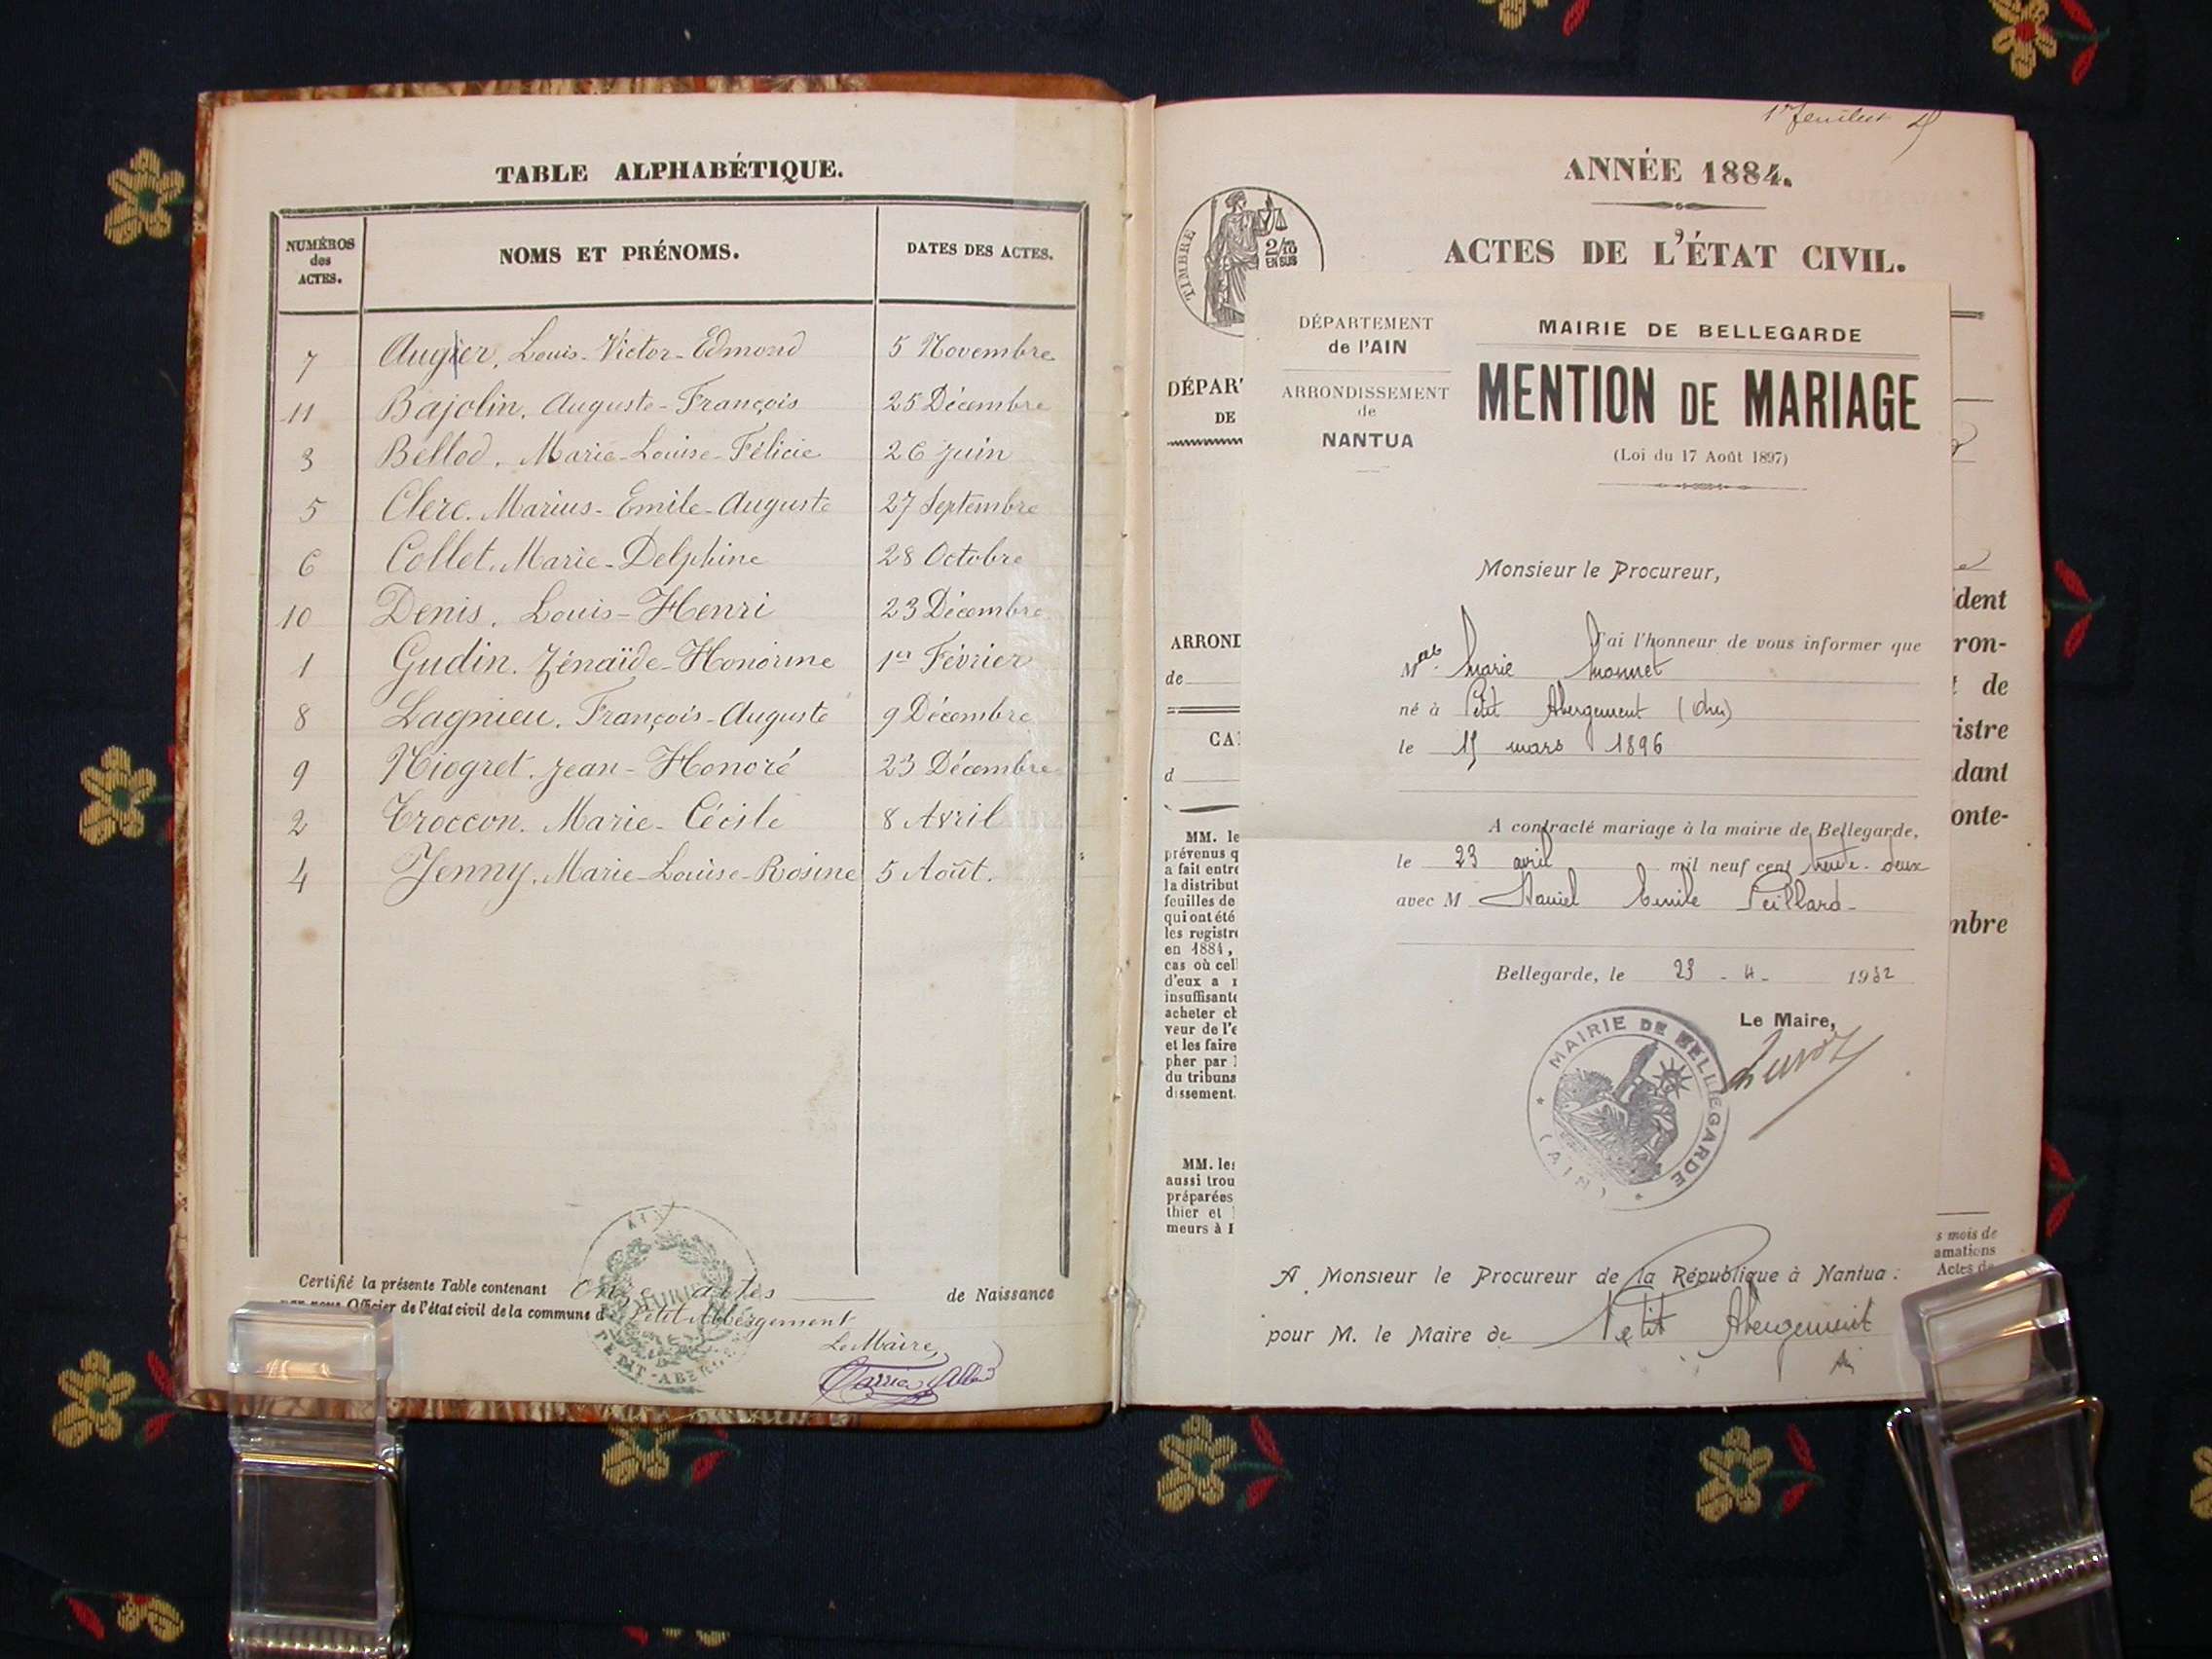 TABLE ALPHABÉTIQUE.
NUMÉROS des ACTES.
NOMS ET PRÉNOMS.
DATES DES ACTES.
7 Augier, Louis-Victor-Edmond 5 Novembre
11 Bajolin, Auguste-François 25 Décembre
3 Bellod, Marie-Louise-Félicie 26 Juin
5 Clerc, Marius-Emile-Auguste 27 Septembre
6 Collet, Marie-Delphine 28 Octobre
10 Denis, Louis-Henri 23 Décembre
1 Gudin, Zénaïde-Honorine 1er Février
8 Lagnieu, François-Auguste 9 Décembre
9 Niogret, Jean-Honoré 23 Décembre
2 Troccon, Marie-Cécile 8 Avril
4 Jenny, Marie-Louise-Rosine 5 Août.
Certifié la présente Table contenant Onze actes de Naissance
Officier de l'état civil de la commune d Petit-Abbergement
Le Maire,
1er feuillet
ANNÉE 1884.
ACTES DE L'ÉTAT CIVIL.
TIMBRE
2/10
EN SUS
DÉPAR
DE
ARROND
de
CA
d
MM. le
prévenus q
a fait entre
la distribut
feuilles de
qui ont été
les registre
en 1884,
cas où cel
d'eux a
insuffisante
acheter ch
veur de l'e
et les faire
pher par
du tribuna
dissement.
MM. les
aussi trou
préparées
thier et
meurs à
DÉPARTEMENT
de l'AIN
ARRONDISSEMENT
de
NANTUA
MAIRIE DE BELLEGARDE
MENTION DE MARIAGE
(Loi du 17 Août 1897)
Monsieur le Procureur,
J'ai l'honneur de vous informer que
Marie Monnet
né à Petit Abergement
le 15 mars 1896
A contracté mariage à la mairie de Bellegarde,
le 23 avril mil neuf cent trente-deux
avec M Daniel Emile Peillard
Bellegarde, le 23 - 4 - 1932
Le Maire,
MAIRIE DE BELLEGARDE
(AIN)
A Monsieur le Procureur de la République à Nantua :
pour M. le Maire de Petit Abergement
dent
ron-
de
istre
dant
onte-
mbre
s mois de
amations
Actes de